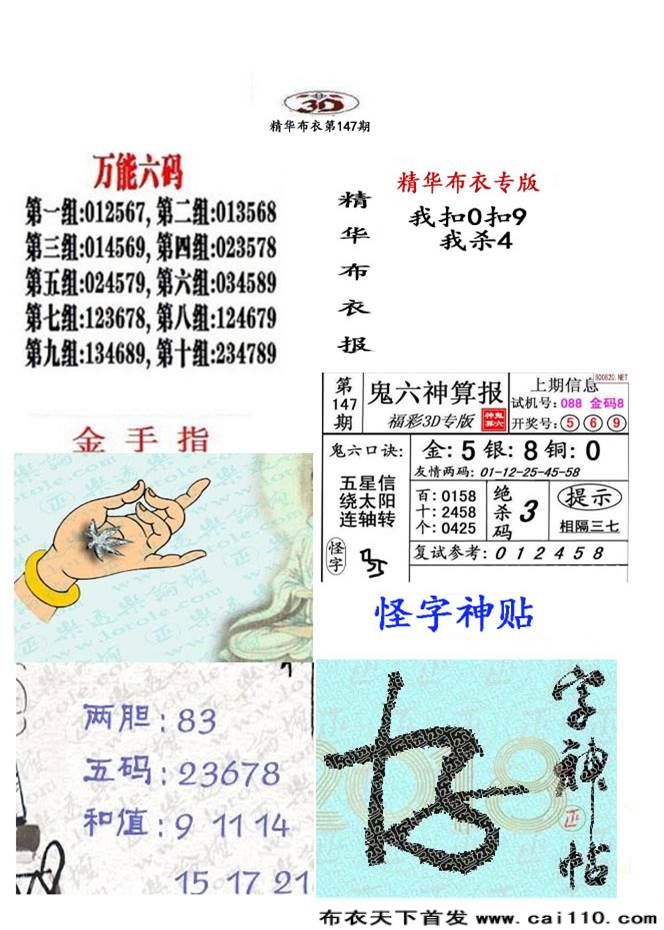 3D
精华布衣第147期
万能六码
第一组:012567,第二组:013568
第三组:014569,第四组:023578
第五组:024579,第六组:034589
第七组:123678,第八组:124679
第九组:134689,第十组:234789
精华布衣报
精华布衣专版
我扣0扣9
我杀4
第147期
鬼六神算报
福彩3D专版
神鬼算六
800820.NET
上期信息
试机号:088 金码8
开奖号:5 6 9
鬼六口诀:
五星信
绕太阳
连轴转
金:5银:8铜:0
友情两码:01-12-25-45-58
百:0158
十:2458
个:0425
绝杀码
3
提示
相隔三七
怪字
复试参考:012458
金手指
怪字神贴
两胆:83
五码:23678
和值:9 11 14
15 17 21
2018
字神帖
布衣天下首发 www.cai110.com